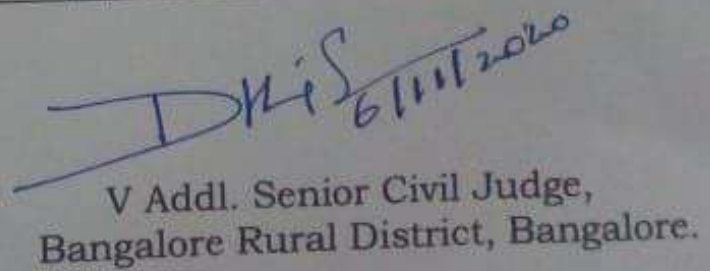 6/11/2020
V Addl. Senior Civil Judge,
Bangalore Rural District, Bangalore.